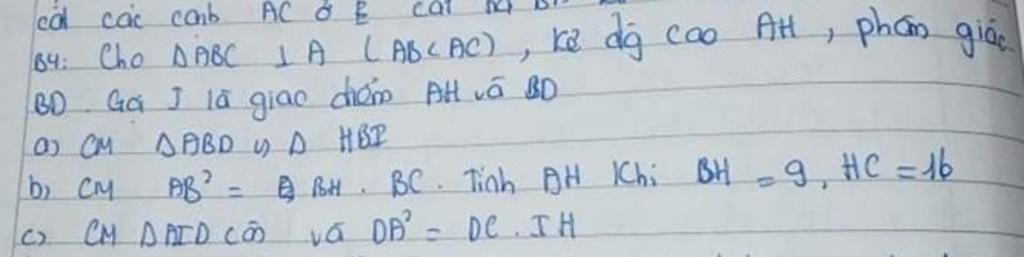 cắt các cạnh AC ở E cắt
B4: Cho ΔABC ⊥ A (AB<AC), kẻ đg cao AH, phân giác
BD. Gọi I là giao điểm AH và BD
a) CM ΔABD ᔕ Δ HBI
b) CM AB² = BH. BC. Tính AH Khi BH = 9, HC = 16
c) CM ΔAID cân và DA² = DC. IH